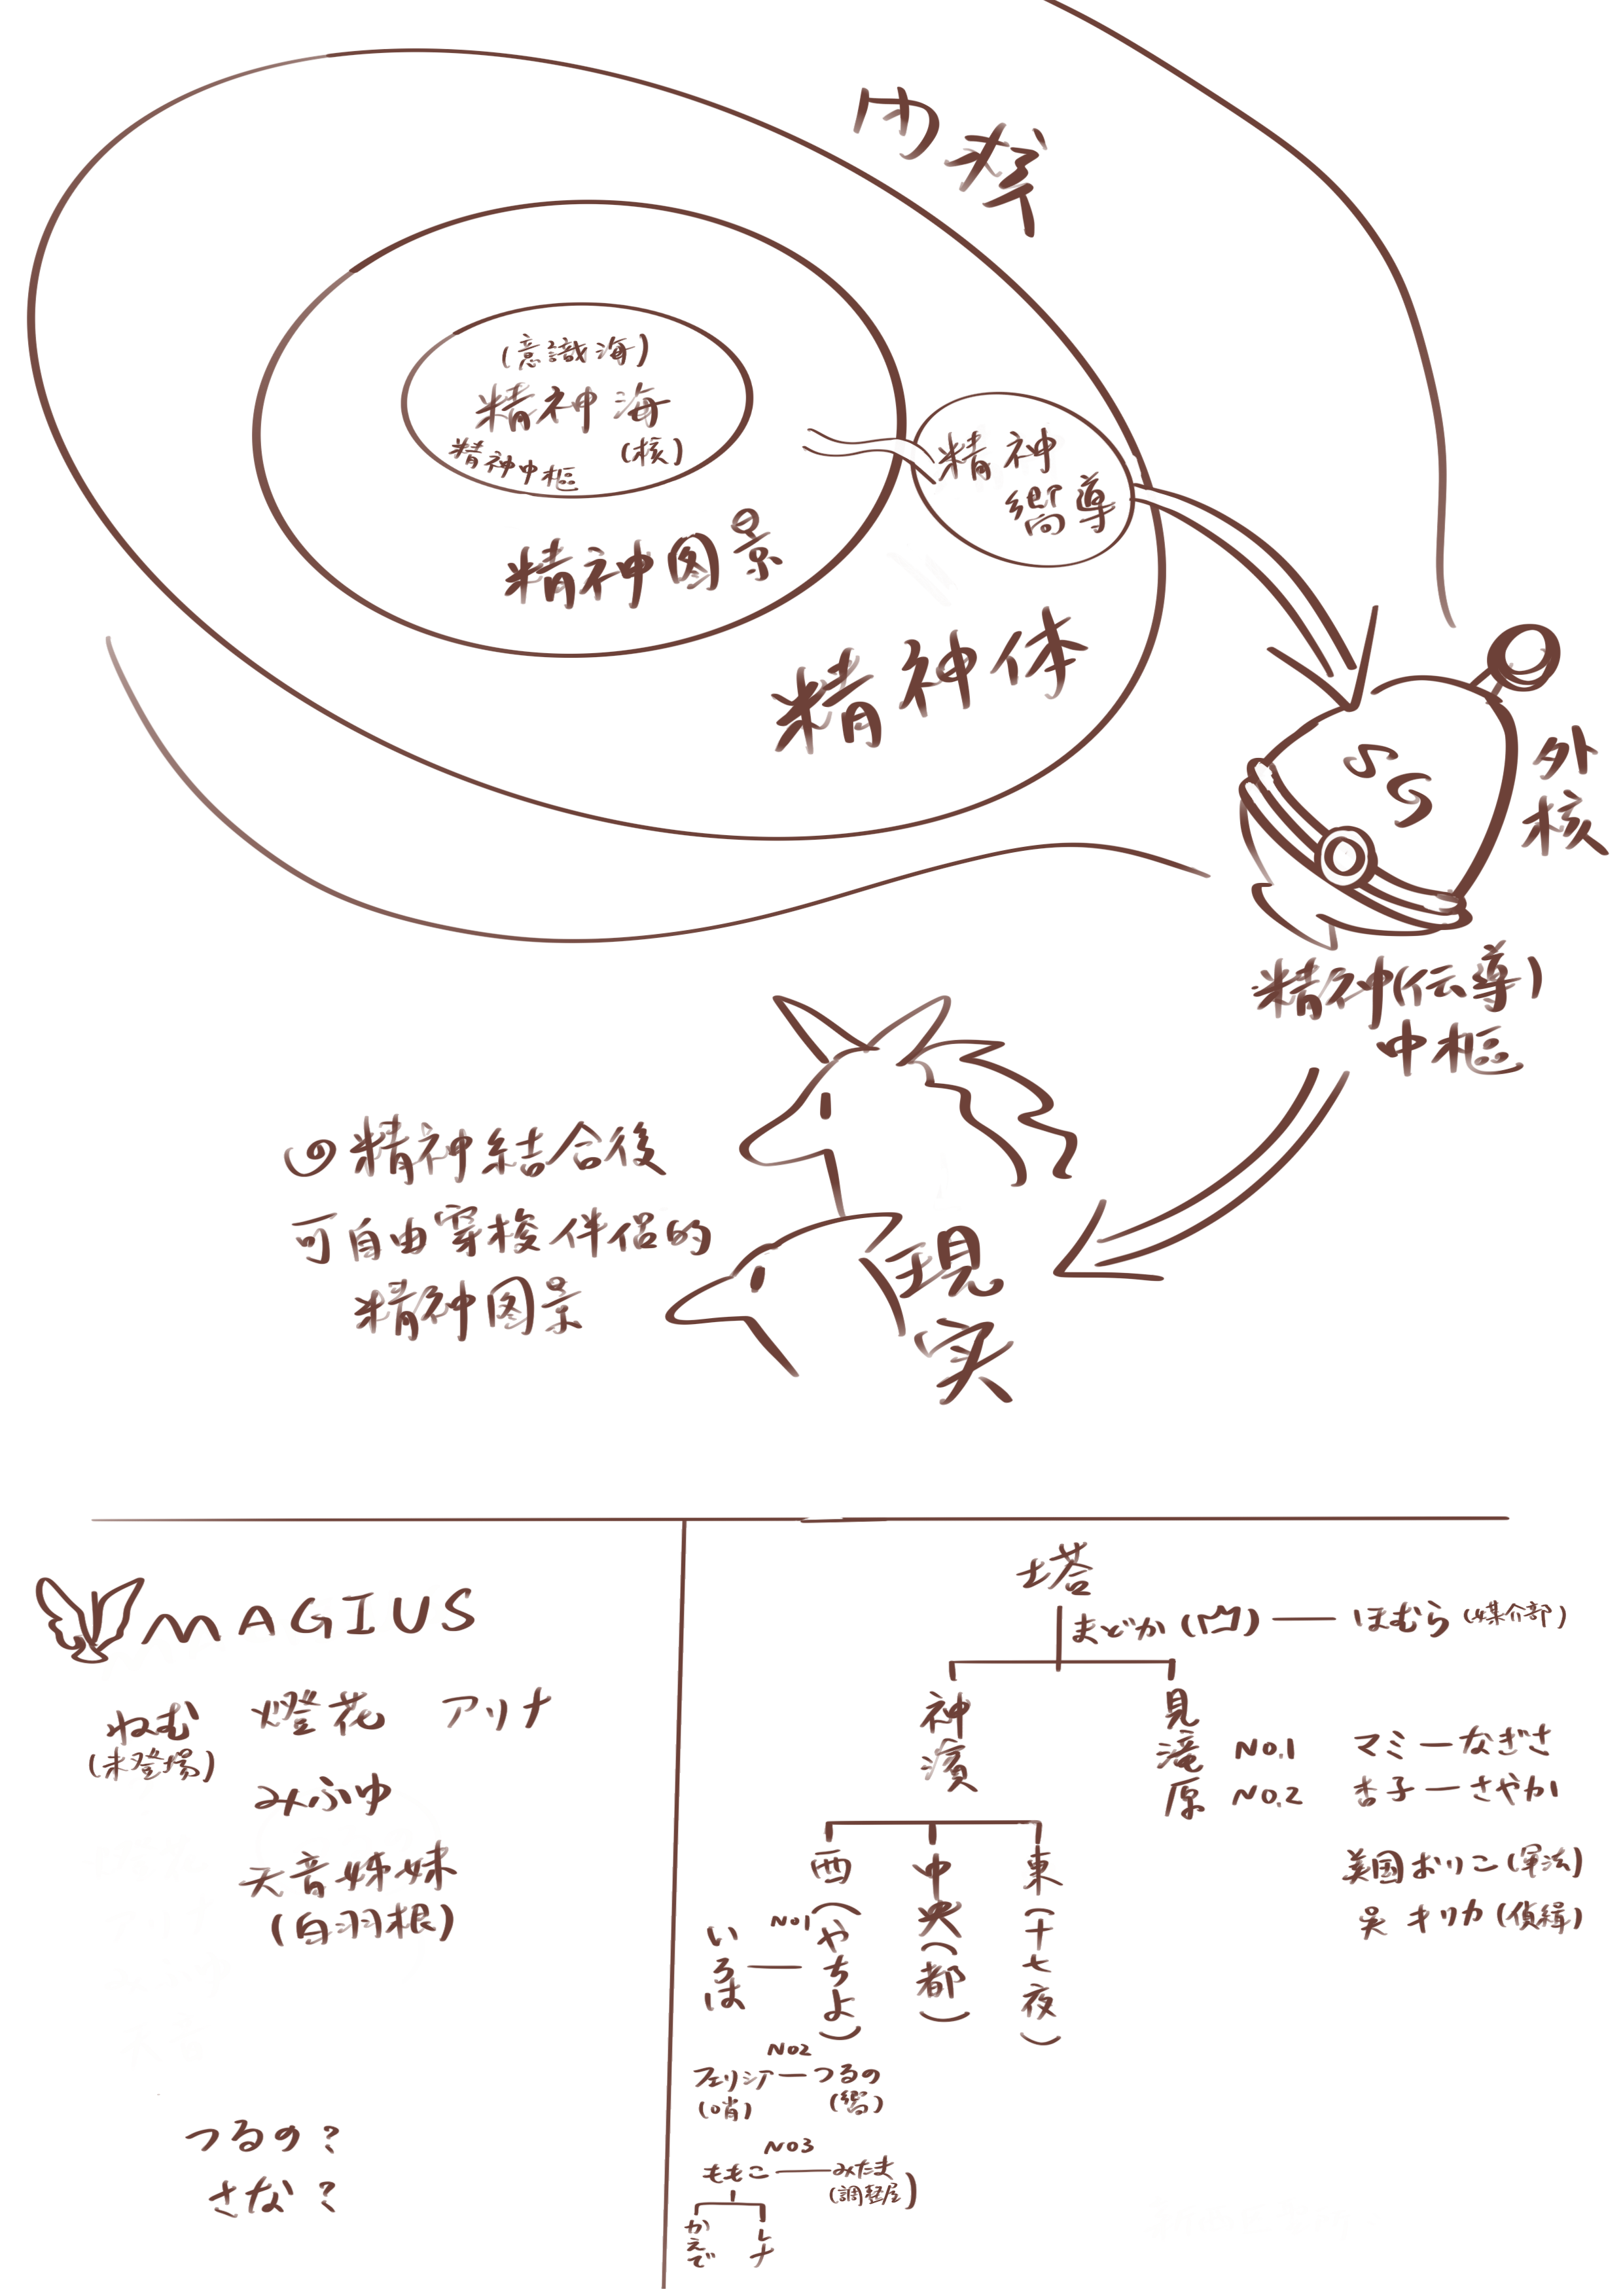 内核
(意識海)
精神海
(核)
精神中枢
精神图景
精神
嚮導
精神体
SG
外核
精神(伝導)
中枢
精神結合後
可自由穿梭伴侶的
精神图景
現実
MAGIUS
ねむ
(未登場)
燈花
アリナ
みふゆ
天音姉妹
(白羽根)
つるの？
さな？
塔
まどか ― ほむら(媒介部)
神濱
見滝原
No.1 マミーなぎさ
No.2 杏子ーさやか
美国おりこ(軍法)
呉キリカ(偵緝)
西(やちよ)
No1
いろは
中央(都)
東(十七夜)
No2
フェリシアーつるの
(哨)
(嚮)
No3
ももこ―みたま
(調整屋)
かえで
レナ